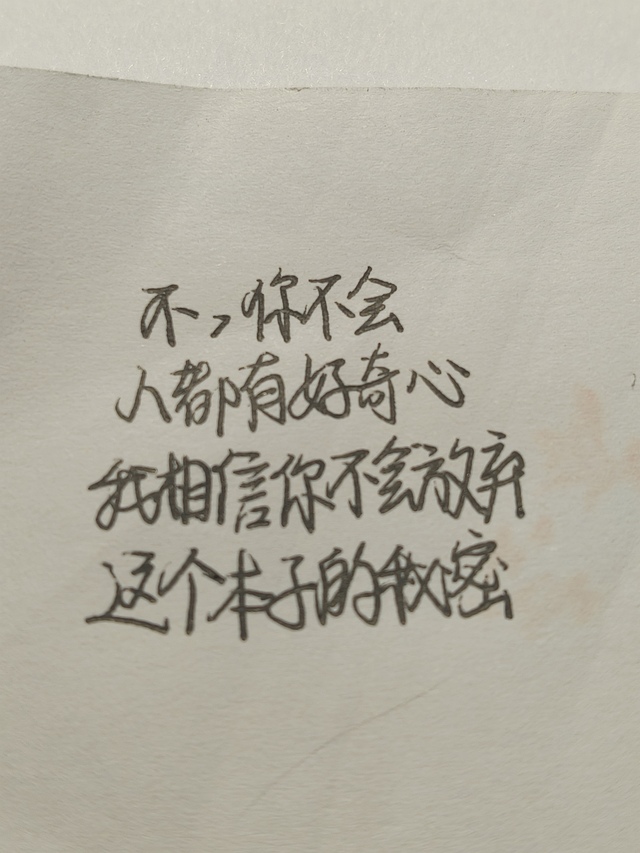 不,你不会
人都有好奇心
我相信你不会放弃
这个本子的秘密